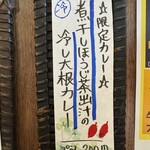 ☆限定カレー☆
冷
煮干しほうじ茶出汁の
冷し大根カレー
200円